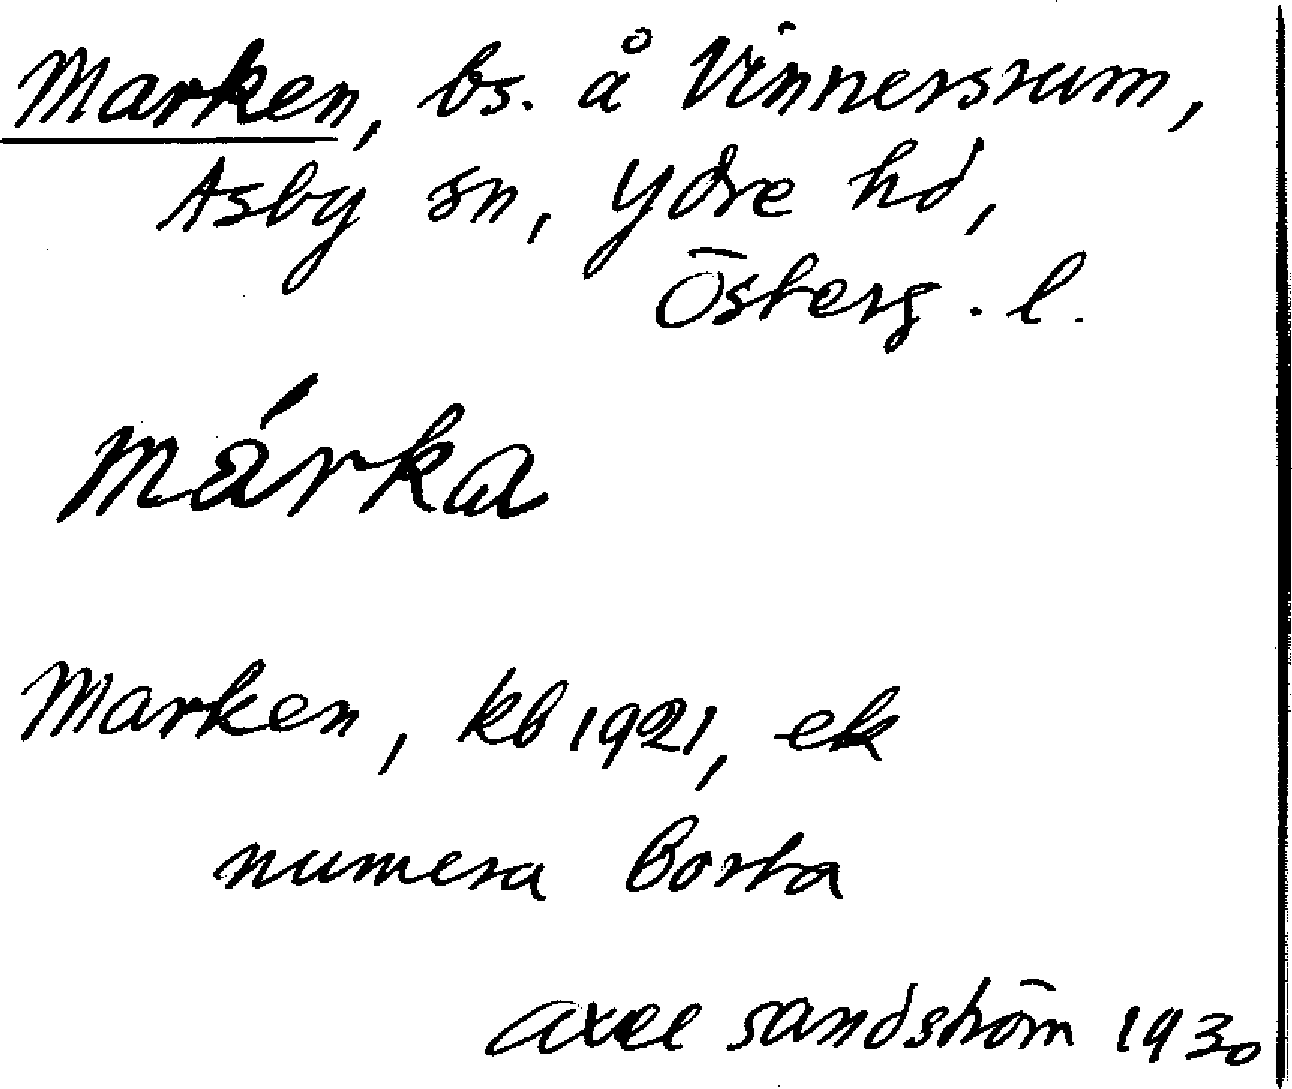 Marken, bs. å Vinnersrum,
Asby sn, Ydre hd,
Österg. l.
márka
Marken, kb 1921, ek
numera borta
Axel Sandström 1930